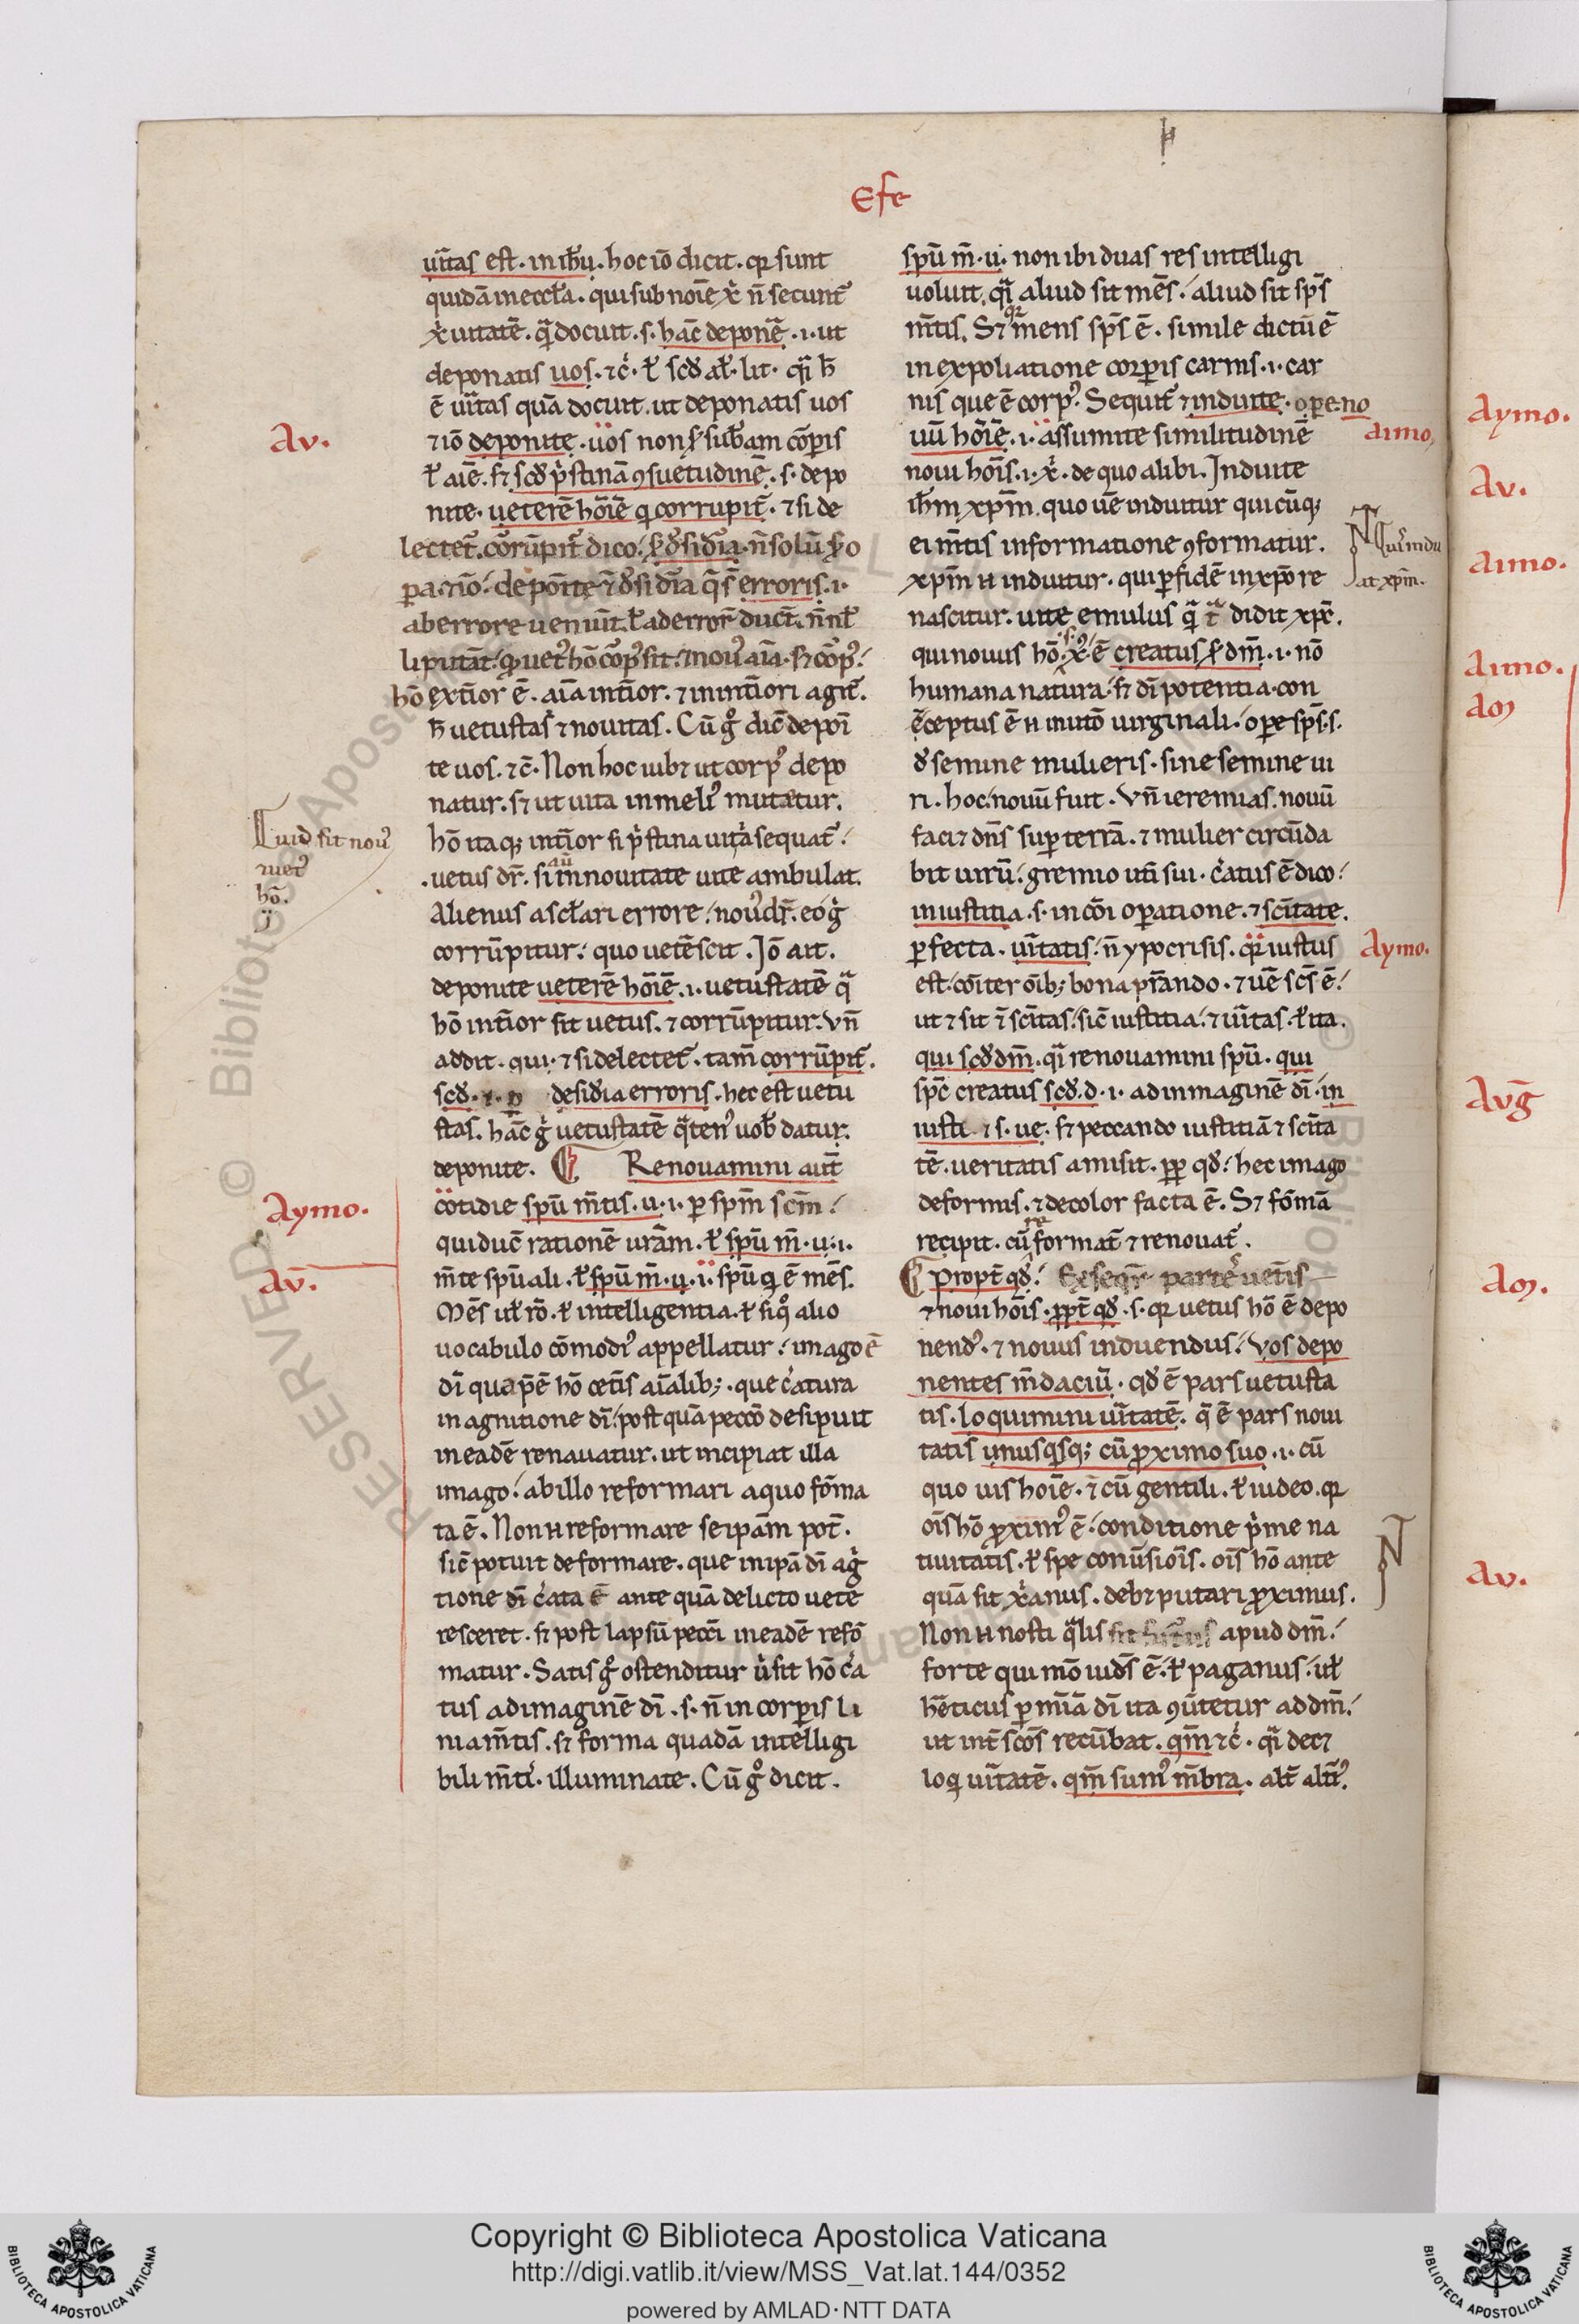 Efe
uĩtas est. in ihũ. hoc iõ dicit. qr sunt
quidã in eccła. qui sub noĩe xͥ ñ secunt᷑
xͥ uitatẽ. qͣ docuit. s. hãc deponẽ. i. ut
deponatis uos. ⁊ cͥ. ł scð ał. lit. qͣ h̃
ẽ uĩtas quã docuit. ut deponatis uos
Av.
⁊ iõ deponite. uos non ꝑ sub̃am cõꝑis
ł aiẽ. s; scð pͥstinã ꝯsuetudinẽ. s. depo
nite. ueterẽ hoĩẽ q corrupit᷑. ⁊ si de
lectet᷑. corũpit᷑ dico. ꝑ ðsidĩa. ñ solũ ꝑ o
pa. ⁊ iõ. deponite ẽ ðsidĩa q̃ s̃ erroris. i.
ab errore ueniũt. ł ad errorẽ ducũt.
ho extĩor ẽ. aĩa intĩor. ⁊ in intĩori agit᷑.
h̃ uetustas ⁊ nouitas. Cũ gͦ dic̃ deponi
te uos. ⁊ c̃. Non hoc iub⁊ ut corpꝰ depo
natur. s⁊ ut uita in meliꝰ mutetur.
Quid sit nouꝰ
⁊ uetꝰ
hõ.
hõ itaq; intĩor si pͥstina uita sequat᷑.
uetus dr̃. si aũ in nouitate uite ambulat.
Alienus a scłari errore. nouꝰ dr̃. eo gͥ
corrũpitur. quo uetẽscit. Jõ ait.
deponite ueterẽ hoĩẽ. i. uetustatẽ qͣ
hõ intĩor fit uetus. ⁊ corrũpitur. vñ
addit. qui. ⁊ si delectet᷑. tam̃ corrũpit᷑.
scð. desiðia erroris. hec est uetu
stas. hãc gͥ uetustatẽ qͣtenꝰ uob̃ datur.
deponite. Renouamini aut̃
Aymo.
cotidie spũ m̃tis. u. i. ꝑ spm̃ scm̃.
qui duc̃ rationẽ urãm. ł spũ m̃. u. i.
Aṽ.
m̃te spũali. ł spũ m̃. u. i. spũ q ẽ mẽs.
Mẽs uł rõ. ł intelligentia. ł siqͦ alio
uocabulo cõmodiꝰ appellatur. imago ẽ
dĩ qua p̃ẽ hõ cetĩs aĩalib;. que cͥatura
in agnitione dĩ. post quã peccõ desipuit
in eadẽ renauatur. ut incipiat illa
imago. ab illo reformari a quo fõma
ta ẽ. Non .n. reformare se ipãm pot̃.
sic̃ potuit deformare. que in ipã dĩ agͥ
tione dĩ cͥata ẽ ante quã delicto uete
resceret. s; post lapsũ pecci in eadẽ refõ
matur. Satis gͦ ostenditur u͛ sit hõ cͥa
tus ad imaginẽ dĩ. s. ñ in corꝑis li
niam̃tis. s⁊ forma quadã intelligi
bili m̃tĩ. illuminate. Cũ gͦ dicit.
spũ m̃. u. non ibi duas res intelligi
uoluit. qͣ aliud sit mẽs. aliud sit sps̃
m̃tis. S⁊ qr mens sps̃ ẽ. simile dictũ ẽ
in expoliatione corꝑis carnis. i. car
nis que ẽ corpꝰ. Sequit᷑ ⁊ induite. oꝑe. no
uũ hoĩẽ. i. assumite similitudinẽ
aimo.
noui hoĩs. i. xͥ. de quo alibi. Induite
ih̃m xpm̃. quo uẽ induitur quicũq;
ei m̃tis informatione ꝯformatur.
xpm̃ .n. induitur. qui ꝑ fidẽ in xpõ re
nascitur. uite emulus qͣ tͣdidit xpc̃.
qui nouus hõ. s. xͨ. ẽ creatus ꝑ dm̃. i. nõ
humana natura. s; dĩ potentia. con
ceptus ẽ .n. in utõ uirginali. oꝑe sps̃. s.
ð semine mulieris. sine semine ui
ri. hoc. nouũ fuit. Vñ ieremias. nouũ
faci⁊ dñs suꝑ terrã. ⁊ mulier circũda
bit uirũ. gremio uĩt sui. cͥatus ẽ dico.
in iustitia. s. in cõi oꝑatione. ⁊ scĩtate.
ꝑfecta. uĩtatis. ñ ypocrisis. qr iustus
Aymo.
est. cõiter oĩb; bona pr̃ando. ⁊ uẽ scs̃ ẽ.
ut ⁊ sit ĩ scĩtas. sic̃ iustitia. ⁊ uĩtas. ł ita.
qui scðdm̃. qͣ renouamini spũ. qui
sps̃ creatus scð. d. i. ad immaginẽ dĩ. in
iusti. ⁊ s. ue. s; peccando iustitiã ⁊ scĩta
tẽ. ueritatis amisit. ꝓp qð. hec imago
deformis. ⁊ decolor facta ẽ. S⁊ fõmã
recipit. cũ reformat᷑ ⁊ renouat᷑.
Propt̃ qð. Exseqr̃ partẽ uetĩs
⁊ noui hoĩs. ꝓpt̃ qð. s. qr uetus hõ ẽ depo
nendꝰ. ⁊ nouus induendus. Vos depo
nentes m̃daciũ. qð ẽ pars uetusta
tis. loquimini uĩtatẽ. q̃ ẽ pars noui
tatis unusqͥsq; cũ ꝓximo suo. i. cũ
quo uis hoĩe. ĩ cũ gentili. ł iudeo. qr
oĩs hõ ꝓximꝰ ẽ. conditione pͥme na
tiuitatis. ł spe conũsiõis. oĩs hõ ante
quã sit xͥanus. deb⁊ putari ꝓximus.
Non .n. nosti qͣlis sit futurus apud dm̃.
forte qui mõ iuds̃ ẽ. ł paganus. uł
hẽticus ꝑ mĩã dĩ ita ꝯũtetur ad dm̃.
ut int̃ scõs recũbat. qm̃ ⁊ cͥ. qͣ dec⁊
loqͥ uĩtatẽ. qm̃ sumꝰ m̃bra. alt̃ altĩꝰ.
Aymo.
Av.
aimo.
aimo.
Avḡ
Av.
Copyright © Biblioteca Apostolica Vaticana
http://digi.vatlib.it/view/MSS_Vat.lat.144/0352
powered by AMLAD·NTT DATA
BIBLIOTECA APOSTOLICA VATICANA
BIBLIOTECA APOSTOLICA VATICANA